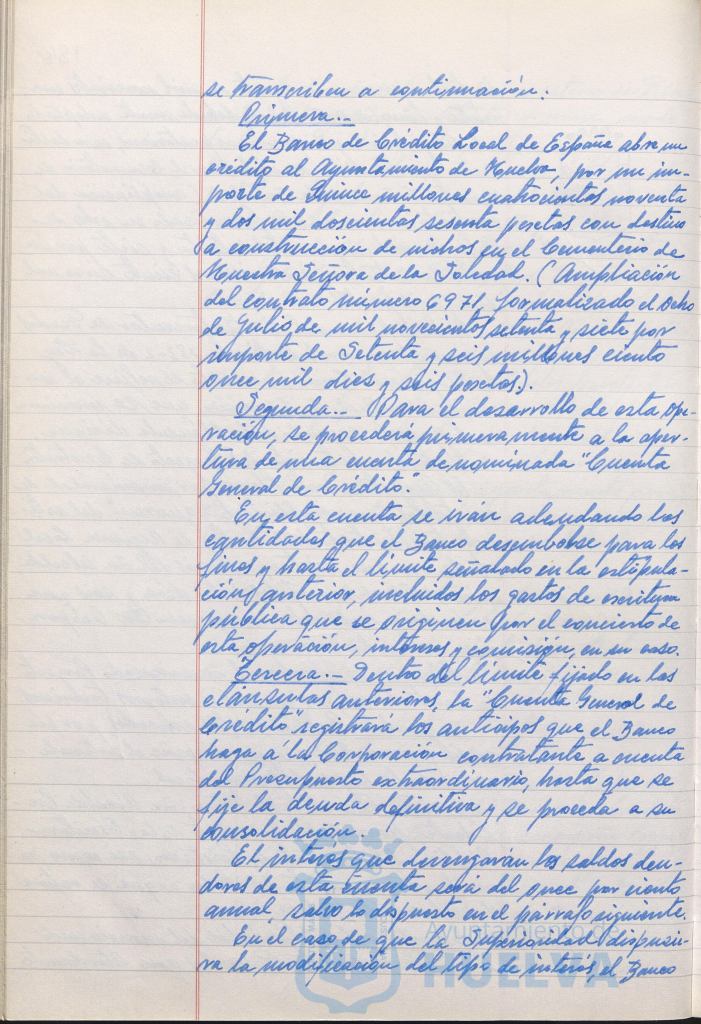 se transcriben a continuación:
Primera.-
El Banco de Crédito Local de España abre un
crédito al Ayuntamiento de Huelva, por un im-
porte de Quince millones cuatrocientos noventa
y dos mil doscientas sesenta pesetas con destino
a construcción de nichos en el Cementerio de
Nuestra Señora de la Soledad. (Ampliación
del contrato número 6971, formalizado el ocho
de Julio de mil novecientos setenta y siete por
importe de Setenta y seis millones ciento
once mil diez y seis pesetas).
Segunda.- Para el desarrollo de esta ope-
ración, se procederá primeramente a la aper-
tura de una cuenta denominada "Cuenta
General de Crédito".
En esta cuenta se irán adeudando las
cantidades que el Banco desembolse para los
fines y hasta el límite señalado en la estipula-
ción anterior, incluidos los gastos de escritura
pública que se originen por el concierto de
esta operación, intereses y comisión, en su caso.
Tercera.- Dentro del límite fijado en las
cláusulas anteriores, la "Cuenta General de
Crédito" registrará los anticipos que el Banco
haga á la Corporación contratante a cuenta
del Presupuesto extraordinario, hasta que se
fije la deuda definitiva y se proceda a su
consolidación.
El interés que devengarán los saldos deu-
dores de esta cuenta será del once por ciento
anual, salvo lo dispuesto en el párrafo siguiente.
En el caso de que la Superioridad dispusie-
ra la modificación del tipo de interés, el Banco
Ayuntamiento de
HUELVA